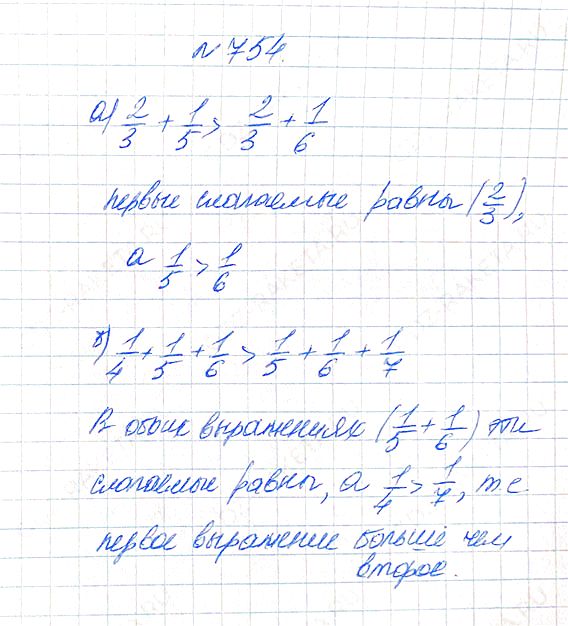 № 754.
а) 2/3 + 1/5 > 2/3 + 1/6
первые слагаемые равны (2/3),
а 1/5 > 1/6
б) 1/4 + 1/5 + 1/6 > 1/5 + 1/6 + 1/7
В обоих выражениях (1/5 + 1/6) эти
слагаемые равны, а 1/4 > 1/7, т.е.
первое выражение больше чем
второе.